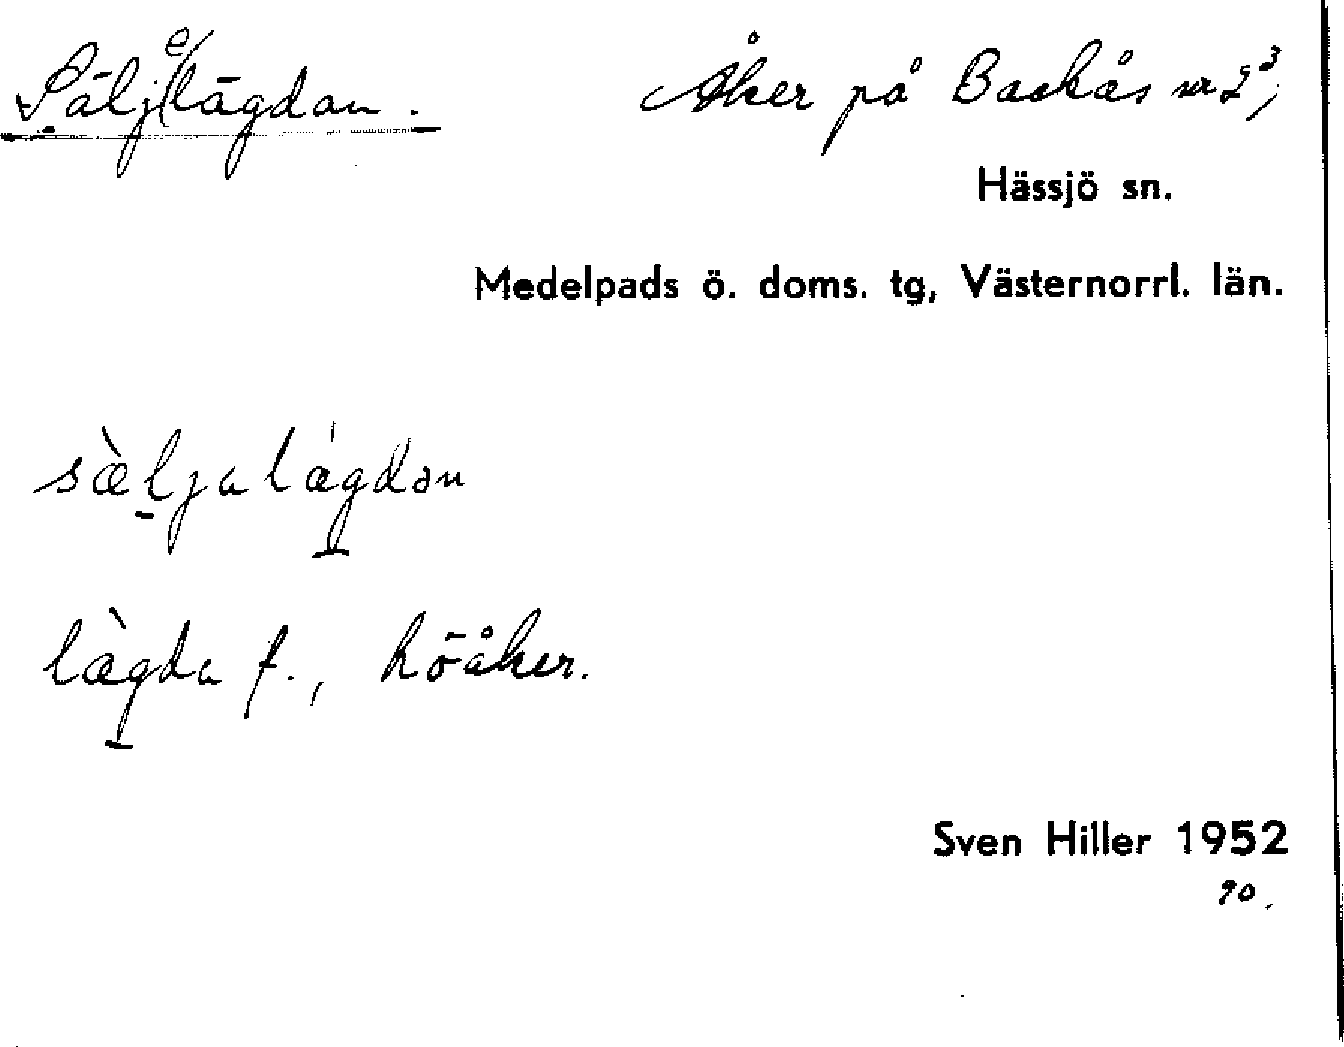 Säljelägdan. Åker på Backås nr 2³,
Hässjö sn.
Medelpads ö. doms. tg, Västernorrl. län.
sæ̀ljalægdan
læ̀gda f., höåker.
Sven Hiller 1952
90.